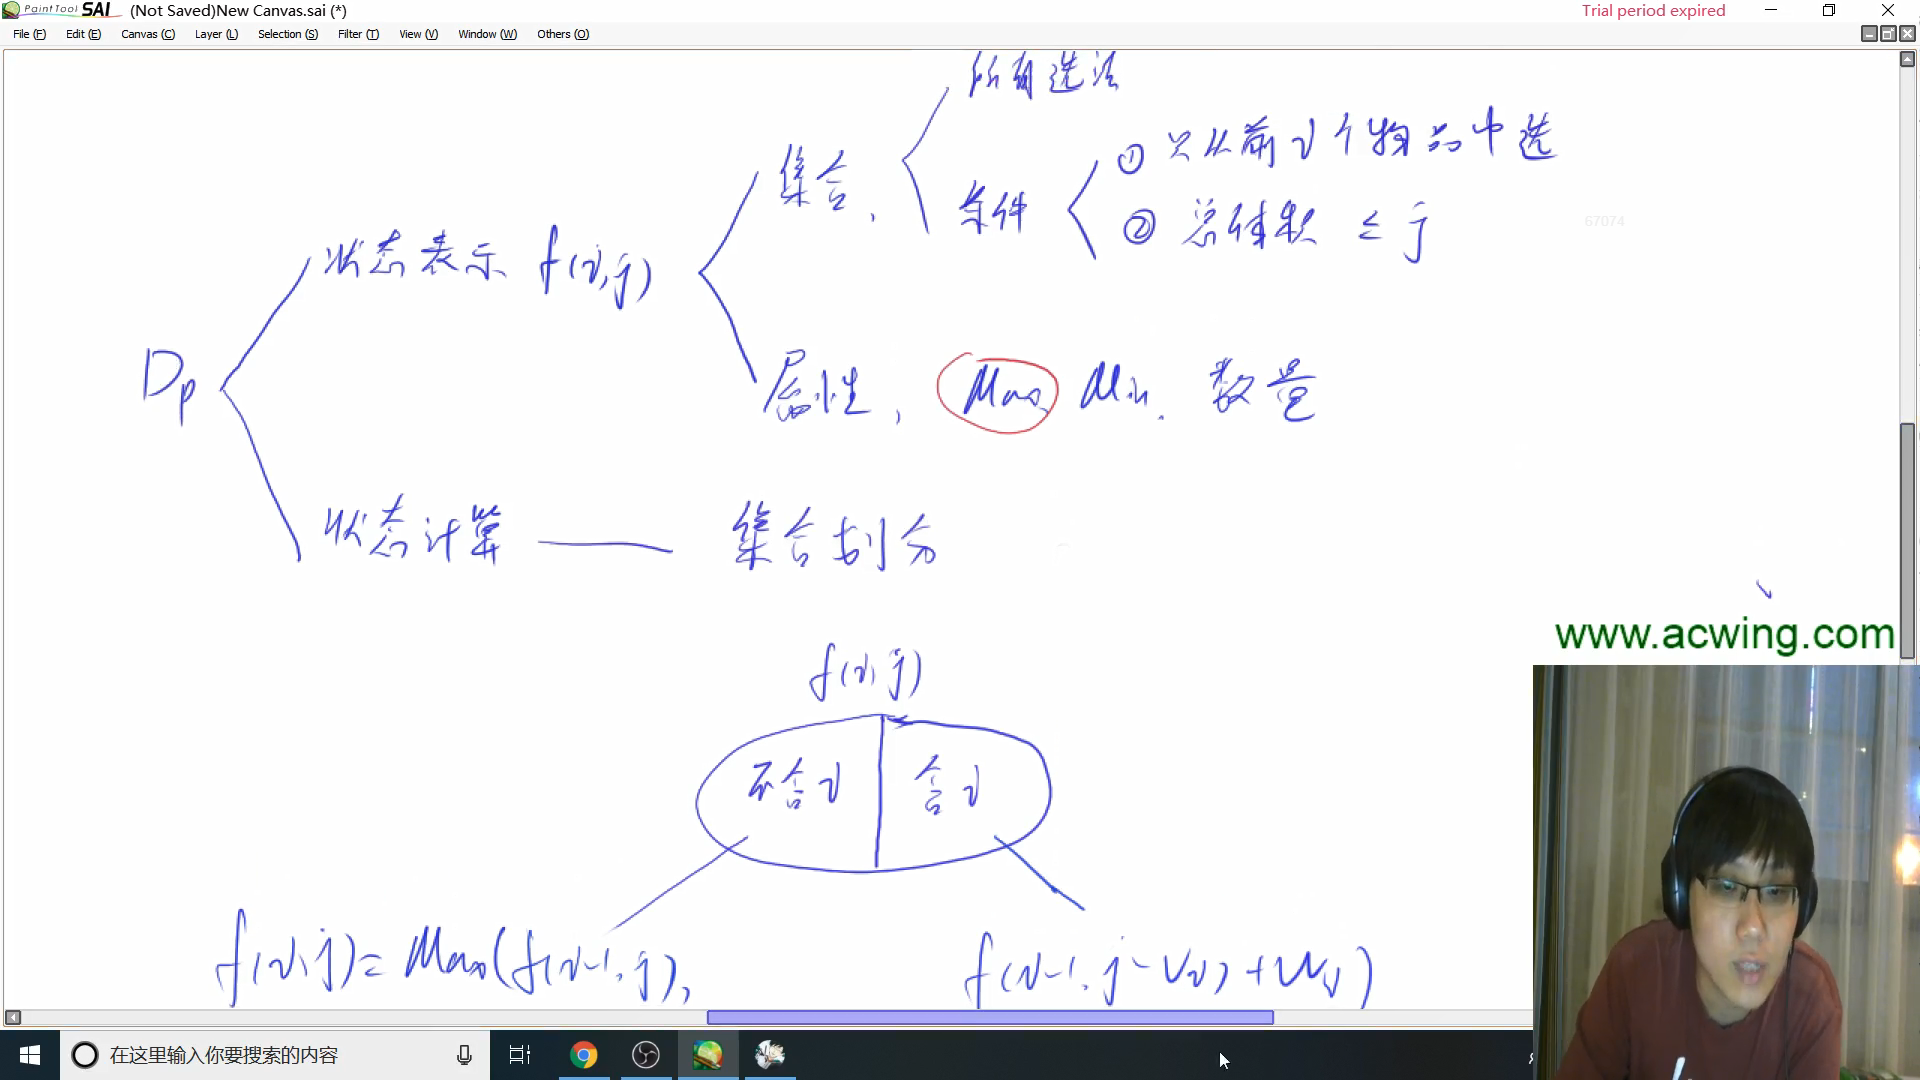 PaintTool SAI (Not Saved)New Canvas.sai (*) Trial period expired
File (F) Edit (E) Canvas (C) Layer (L) Selection (S) Filter (T) View (V) Window (W) Others (O)
所有选法
集合,
条件
① 只从前i个物品中选
② 总体积 ≤ j
67074
状态表示 f(i,j)
Dp
属性, Max Min. 数量
状态计算 —— 集合划分
www.acwing.com
f(i,j)
不含i 含i
f(i,j)= Max(f(i-1,j), f(i-1,j-vi)+wi)
在这里输入你要搜索的内容